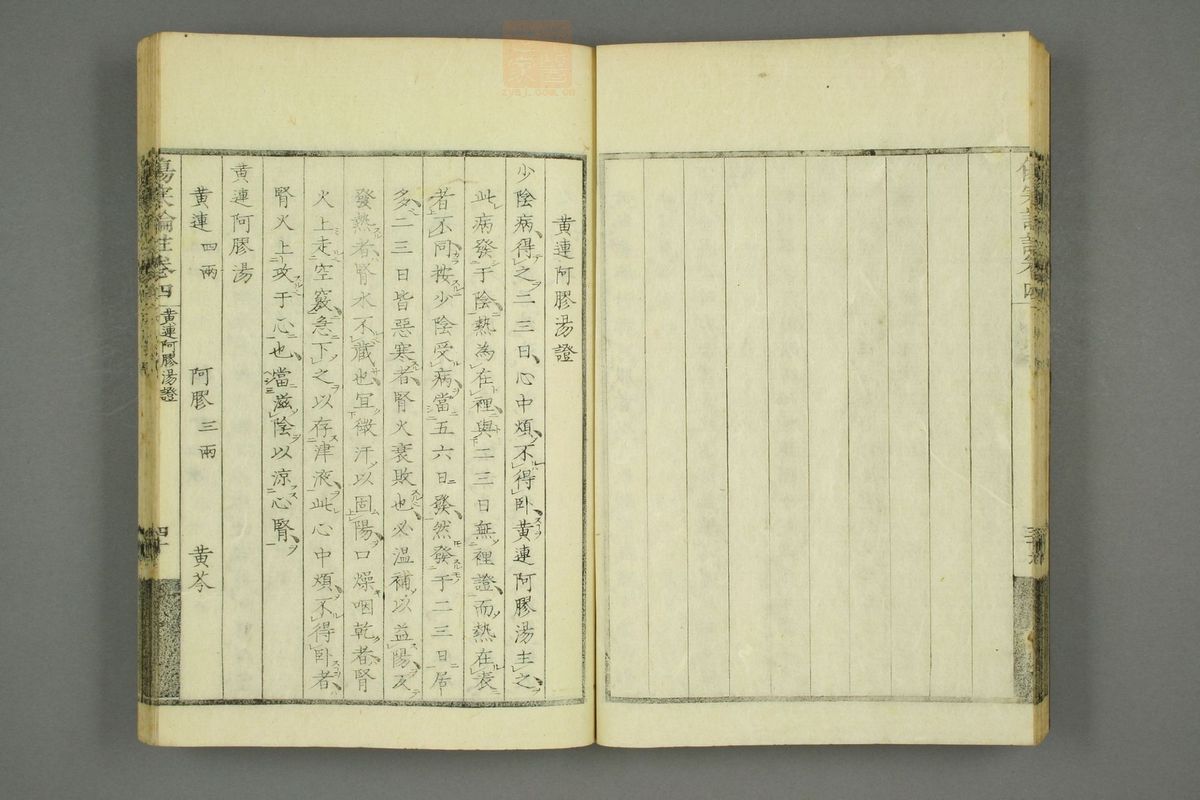 黄連阿膠湯證
少陰病得之二三日心中煩不得卧黄連阿膠湯主之
此病發于陰熱為在裡與二三日無裡證而熱在表
者不同按少陰受病當五六日發然發于二三日居
多二三日皆惡寒者腎火衰敗也必温補以益陽反
發熱者腎水不藏也宜微汗以固陽口燥咽乾者腎
火上走空竅急下之以存津液此心中煩不得卧者
腎火上攻于心也當滋陰以凉心腎
黄連阿膠湯
黄連 四兩 阿膠 三兩 黄芩
傷寒論註卷四 黄連阿膠湯證